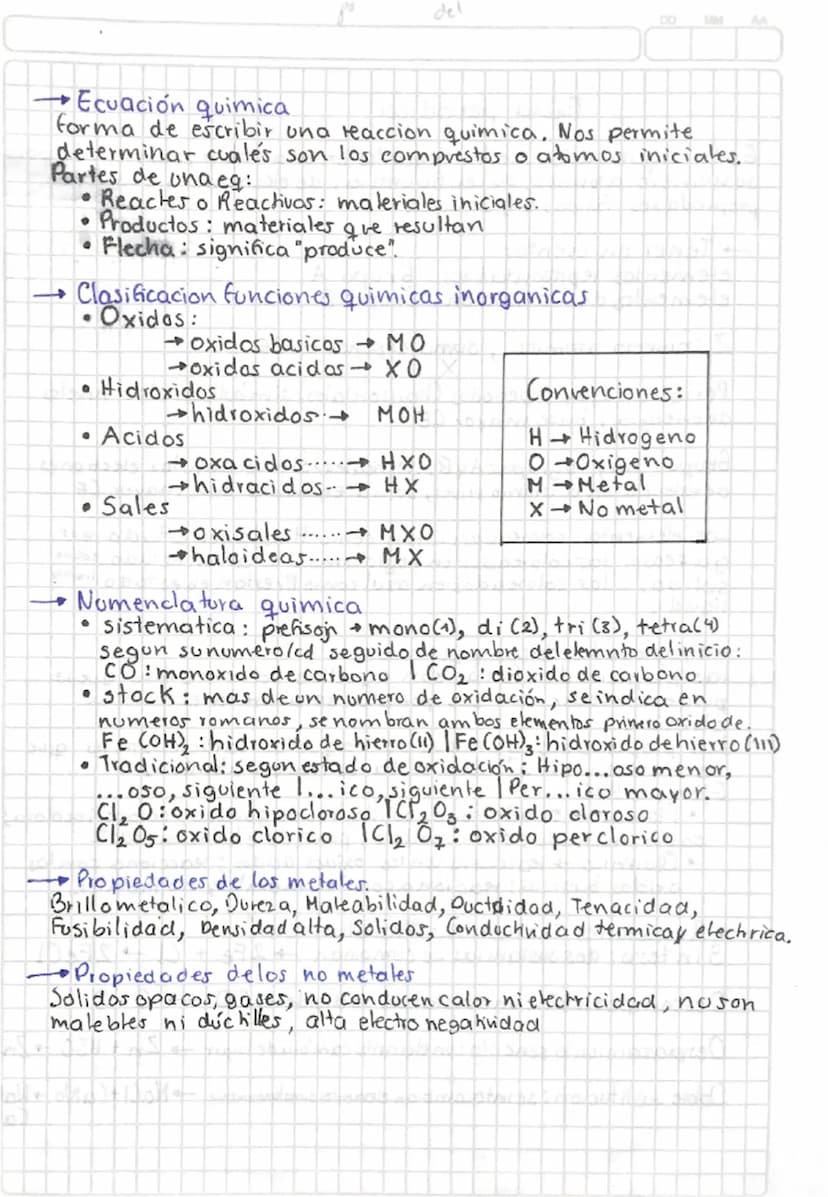 DD MM AA
→ Ecuación quimica
Forma de escribir una reaccion quimica. Nos permite
determinar cuales son los compuestos o atomos iniciales.
Partes de una eq:
• Reactes o Reactivos: materiales iniciales.
• Productos: materiales que resultan
• Flecha: significa "produce".
→ Clasificacion funciones quimicas inorganicas
• Oxidos:
→ oxidos basicos → MO
→ oxidos acidos → XO
• Hidroxidos
→ hidroxidos → MOH
• Acidos
→ oxacidos ..... → HXO
→ hidracidos .. → HX
• Sales
→ oxisales ...... → MXO
→ haloideas ..... → MX
Convenciones:
H → Hidrogeno
O → Oxigeno
M → Metal
X → No metal
→ Nomenclatura quimica
• sistematica: → mono(1), di(2), tri(3), tetra(4)
segun su numero/cd seguido de nombre del elemnto del inicio:
CO: monoxido de carbono | CO₂: dioxido de carbono.
• stock: mas de un numero de oxidación, se indica en
numeros romanos, se nombran ambos elementos primero oxido de.
Fe(OH)₂: hidroxido de hierro(II) | Fe(OH)₃: hidroxido de hierro(III)
• Tradicional: segun estado de oxidación: Hipo...oso menor,
...oso, siguiente |...ico, siguiente | Per...ico mayor.
Cl₂O: oxido hipocloroso | Cl₂O₃: oxido cloroso
Cl₂O₅: oxido clorico | Cl₂O₇: oxido perclorico
→ Propiedades de los metales.
Brillo metalico, Dureza, Maleabilidad, Tenacidad,
Fusibilidad, Densidad alta, Solidos, Conductividad termica y electrica.
→ Propiedades de los no metales
Solidos opacos, gases, no conducen calor ni electricidad, no son
malebles ni dúctilles, alta electronegatividad